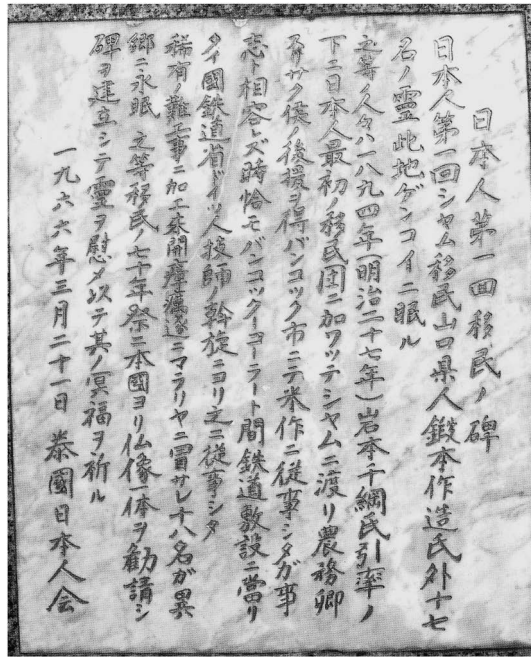 日本人第一回移民ノ碑
日本人第一回シャム移民山口県人鍛本作造氏外十七
名ノ靈此地ゲンコイニ眠ル
之等ノ人々ハ一八九四年(明治二十七年)岩本千綱氏引率ノ
下ニ日本人最初ノ移民団ニ加ワッテシャムニ渡リ農務卿
スリサク侯ノ後援ヲ得バンコック市ニテ米作ニ従事シタガ事
志ト相容レズ時恰モバンコックーコーラート間鉄道敷設ニ當リ
タイ國鉄道省ドイツ人技師ノ幹旋ニヨリ之ニ従事シタ
稀有ノ難工事ニ加エ未開瘴癘遂ニマラリヤニ冒サレ十八名ガ異
郷ニ永眠 之等移民ノ七十年祭ニ本國ヨリ仏像一体ヲ勧請シ
碑ヲ建立シテ靈ヲ慰メ以テ其ノ冥福ヲ祈ル
一九六六年三月二十一日 泰國日本人会